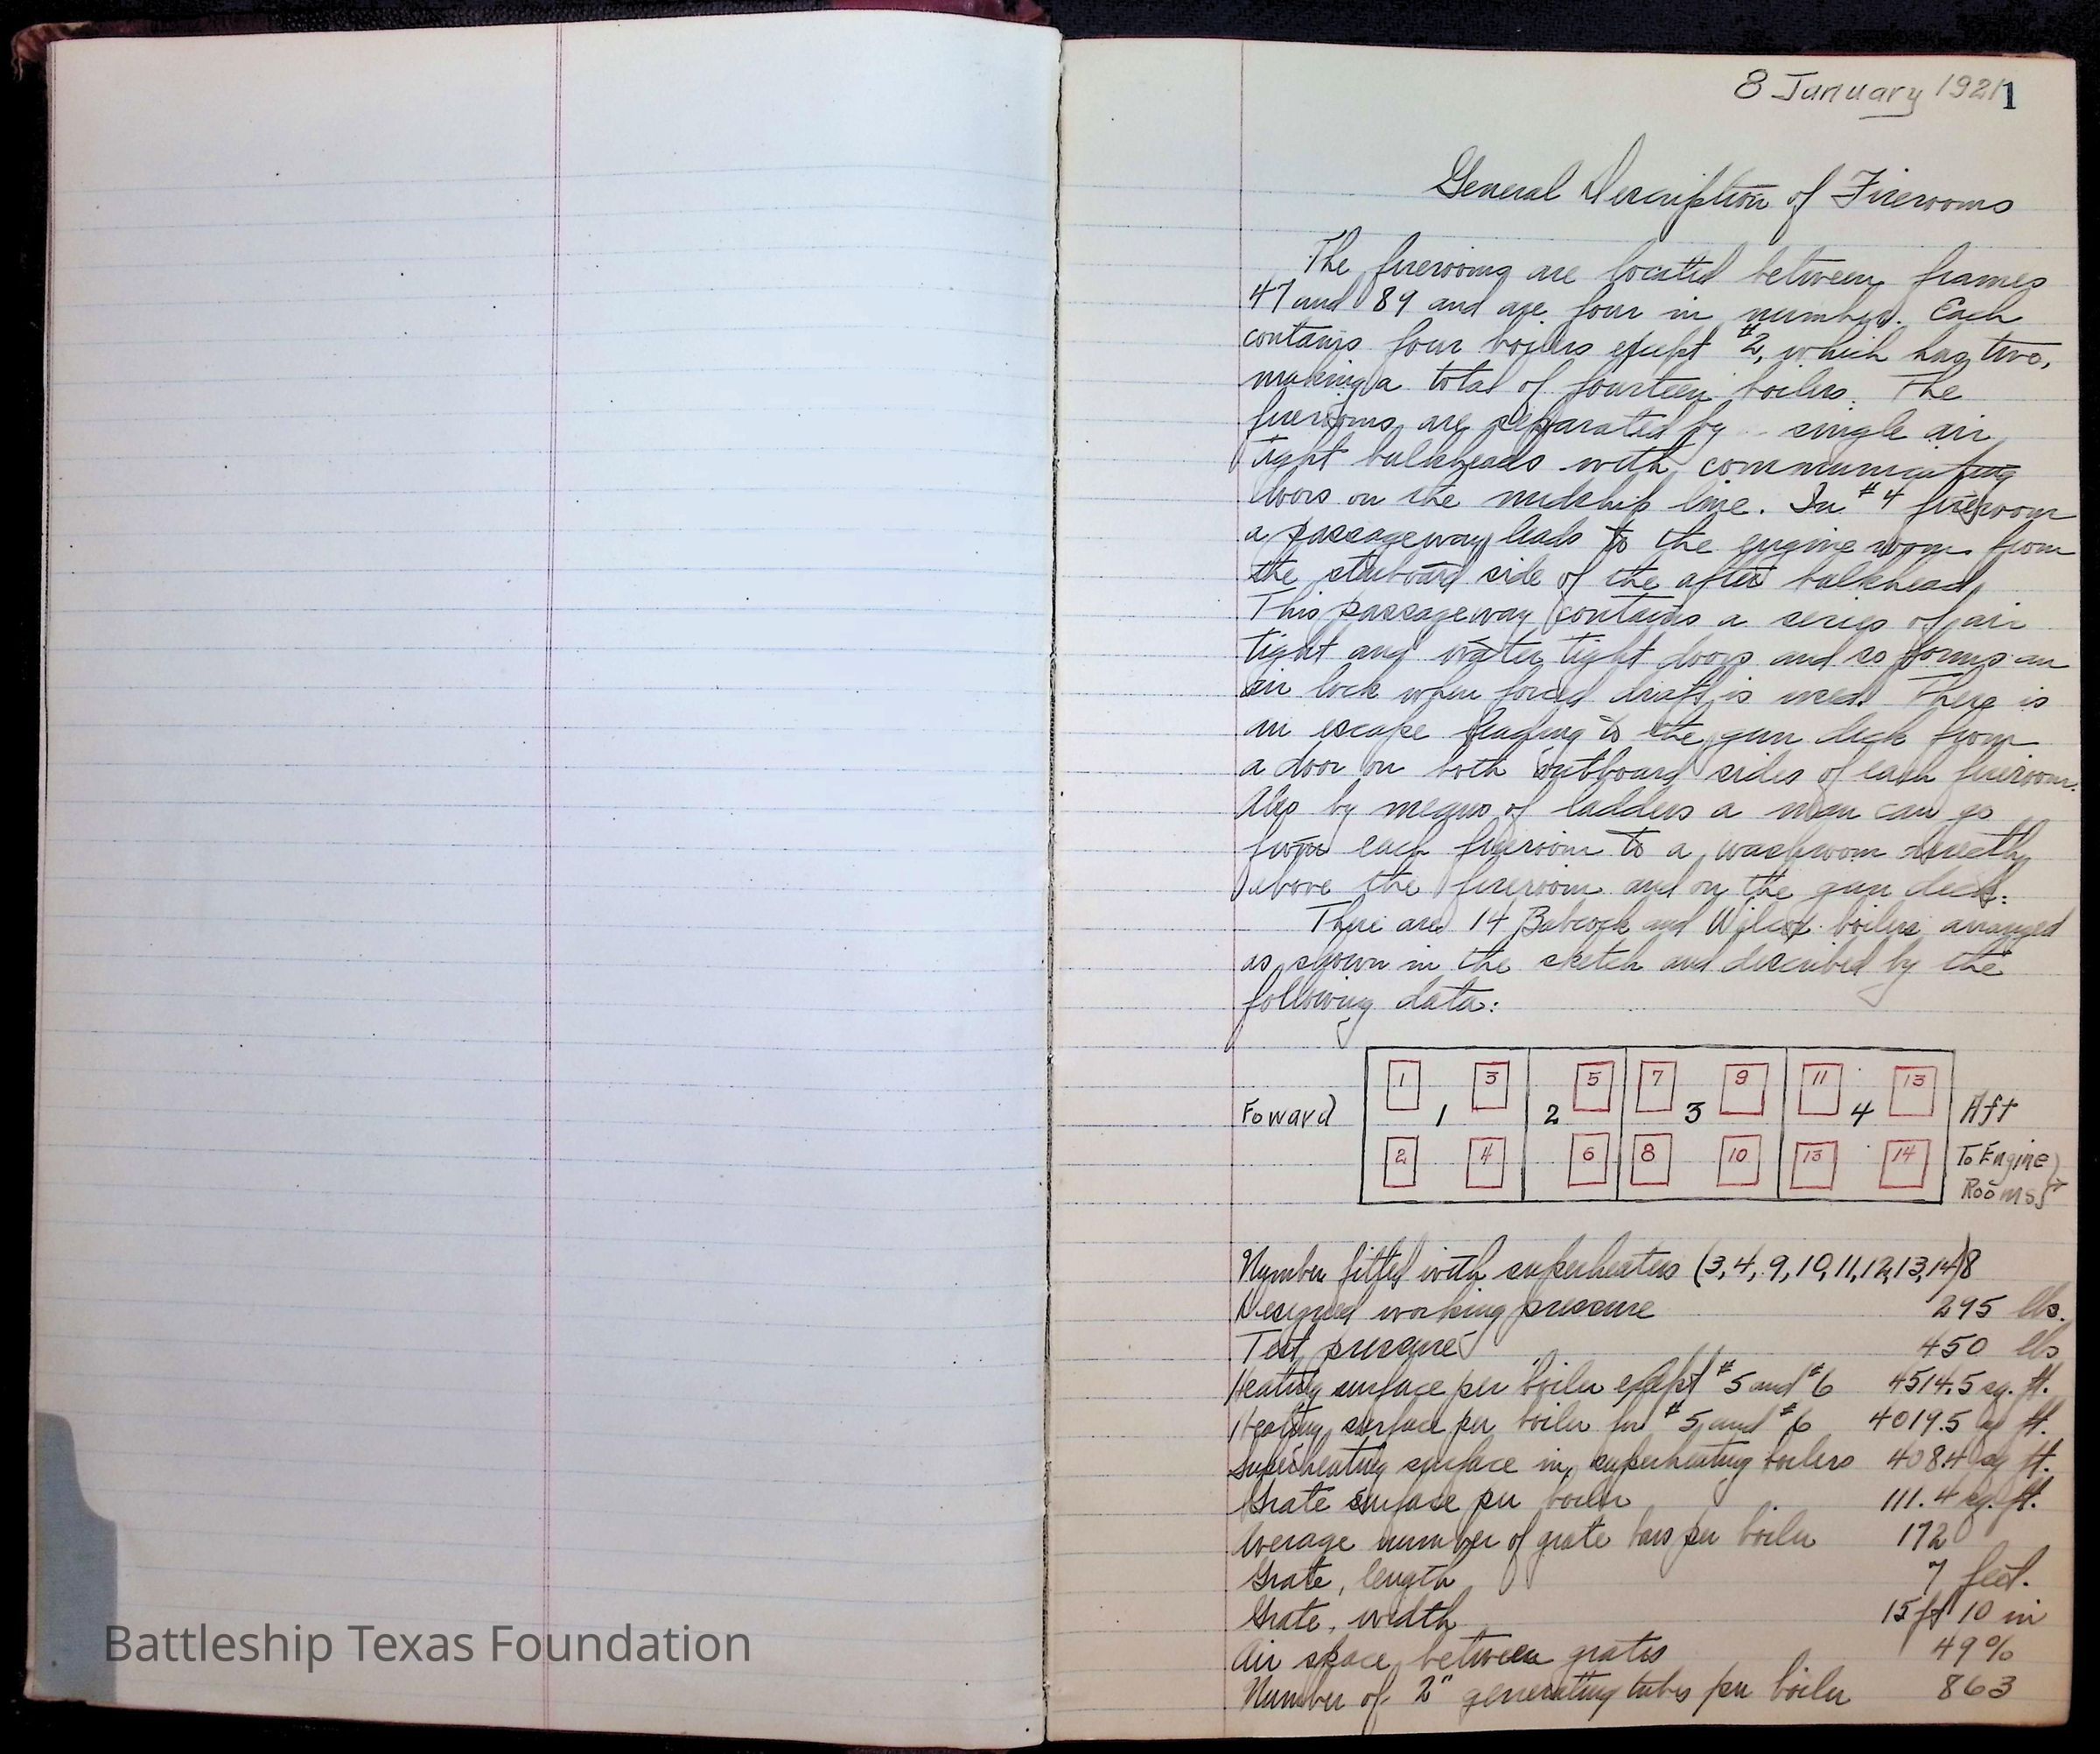 8 January 1921
1
General Description of Firerooms
The firerooms are located between frames
47 and 89 and are four in number. Each
contains four boilers except #2, which has two,
making a total of fourteen boilers. The
firerooms are separated by single air
tight bulkheads with communicating
doors on the midship line. In #4 fireroom
a passageway leads to the engine rooms from
the starboard side of the after bulkhead
This passageway contains a series of air
tight and water tight doors and so forms an
air lock when forced draft is used. There is
an escape leading to the gun deck from
a door on both outboard sides of each fireroom.
Also by means of ladders a man can go
from each fireroom to a washroom directly
above the fireroom and on the gun deck.
There are 14 Babcock and Wilcox boilers arranged
as shown in the sketch and described by the
following data:
1 3 5 7 9 11 13
Foward 1 2 3 4 Aft
2 4 6 8 10 13 14 To Engine
Rooms
Number fitted with superheaters (3,4,9,10,11,12,13,14) 8
Designed working pressure 295 lbs.
Test pressure 450 lbs
Heating surface per boiler except #5 and #6 4514.5 sq. ft.
Heating surface per boiler for #5 and #6 4019.5 sq ft.
Superheating surface in superheating boilers 408.4 sq ft.
Grate surface per boiler 111.4 sq. ft.
Average number of grate bars per boiler 172
Grate, length 7 feet.
Grate, width 15 ft 10 in
Air space between grates 49%
Number of 2" generating tubes per boiler 863
Battleship Texas Foundation